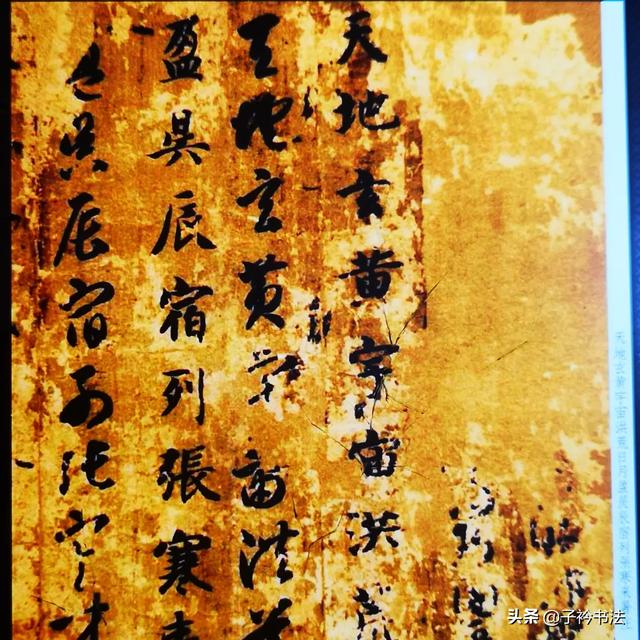 天地玄黄宇宙洪荒日月盈昃辰宿列张寒
天地玄黄宇宙洪荒
天地玄黄宇宙洪荒
盈昃辰宿列張寒來
盈昃辰宿列張寒来
头条 @子衿书法